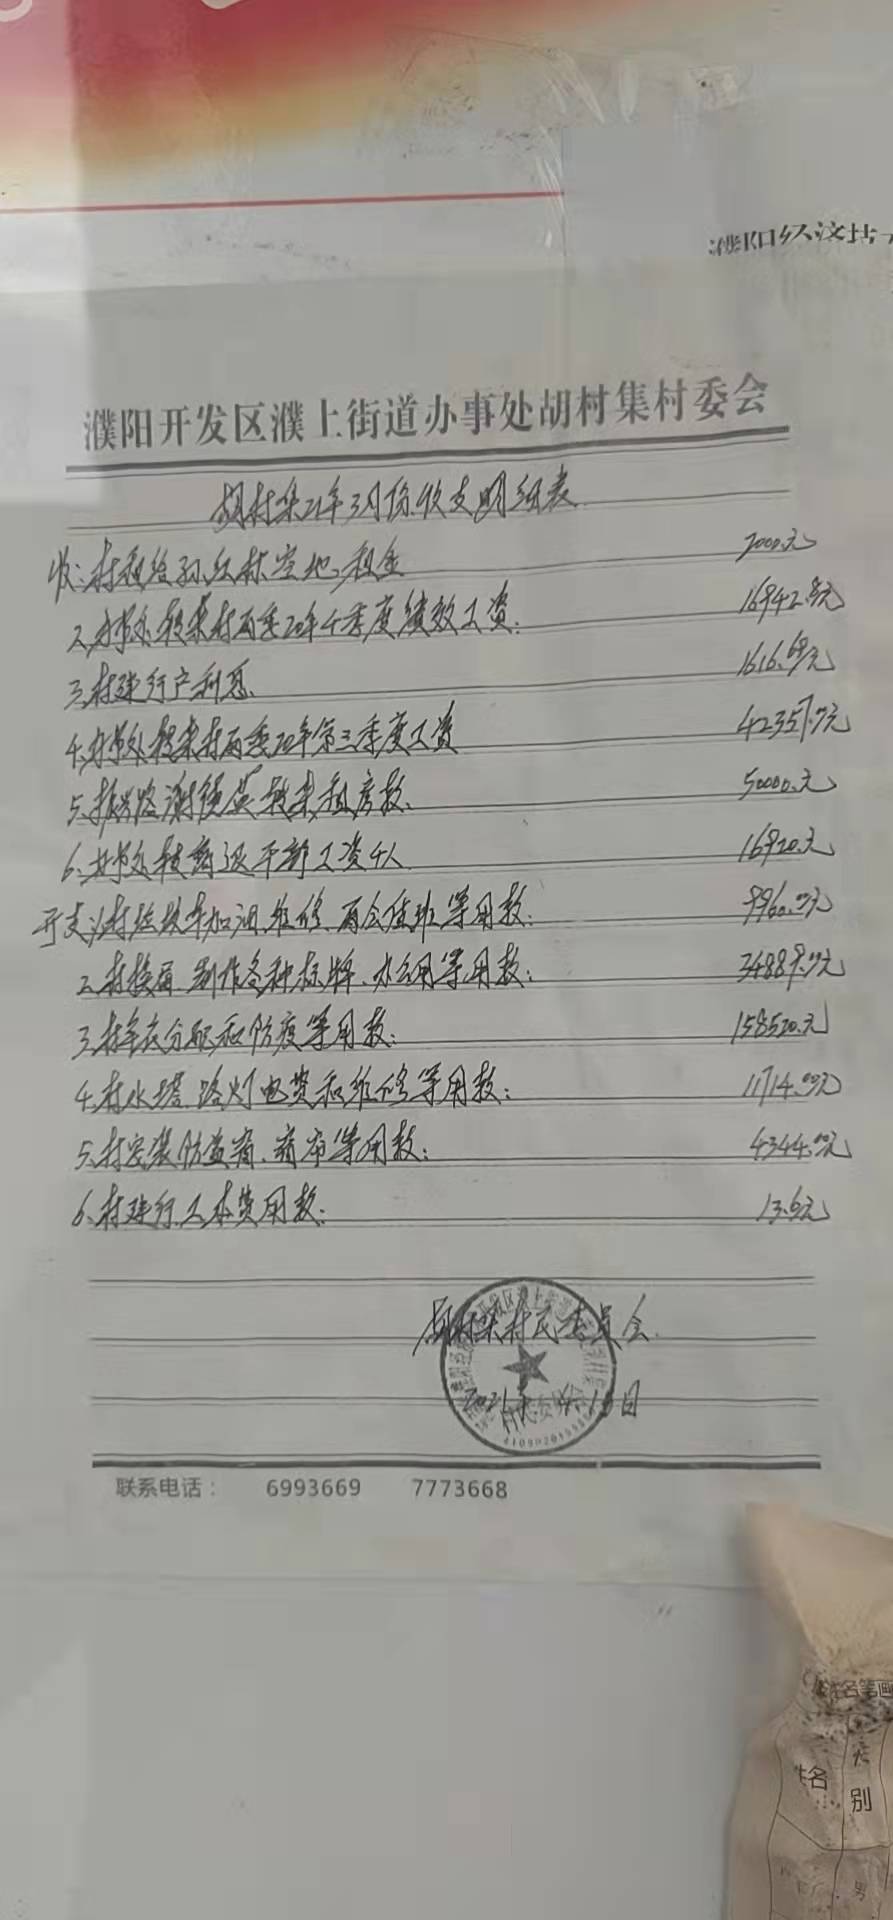 濮阳经济技
濮阳开发区濮上街道办事处胡村集村委会
胡村集21年3月份收支明细表
收:村租给孙红林空地租金 7000.元
2、办事处转来村两委20年4季度绩效工资. 16942.8元
3、村建行户利息. 1616.69元
4、办事处转来村两委20年第三季度工资 42357.00元
5、振兴路谢 转来租房款. 50000.元
6、办事处转 干部工资4人 16920.元
开支:1、村垃圾车加油.维修. 值班等用款: 9960.00元
2、村 制作各种标牌.办公用等用款: 34889.00元
3、村 和防疫等用款: 158520.元
4、村水塔.路灯电费和维修等用款: 11714.00元
5、村安装防盗窗.窗帘等用款: 4344.00元
6、村建行工本费用款: 13.6元
胡村集村民委员会.
2021年 日
联系电话: 6993669 7773668
姓名笔画
姓名
别
男